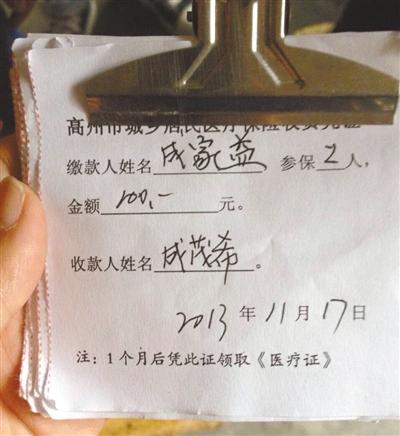 高州市城乡居民医疗保险收费凭证
缴款人姓名成家益,参保2人,
金额100,-元。
收款人姓名成茂希。
2013年11月17日
注:1个月后凭此证领取《医疗证》